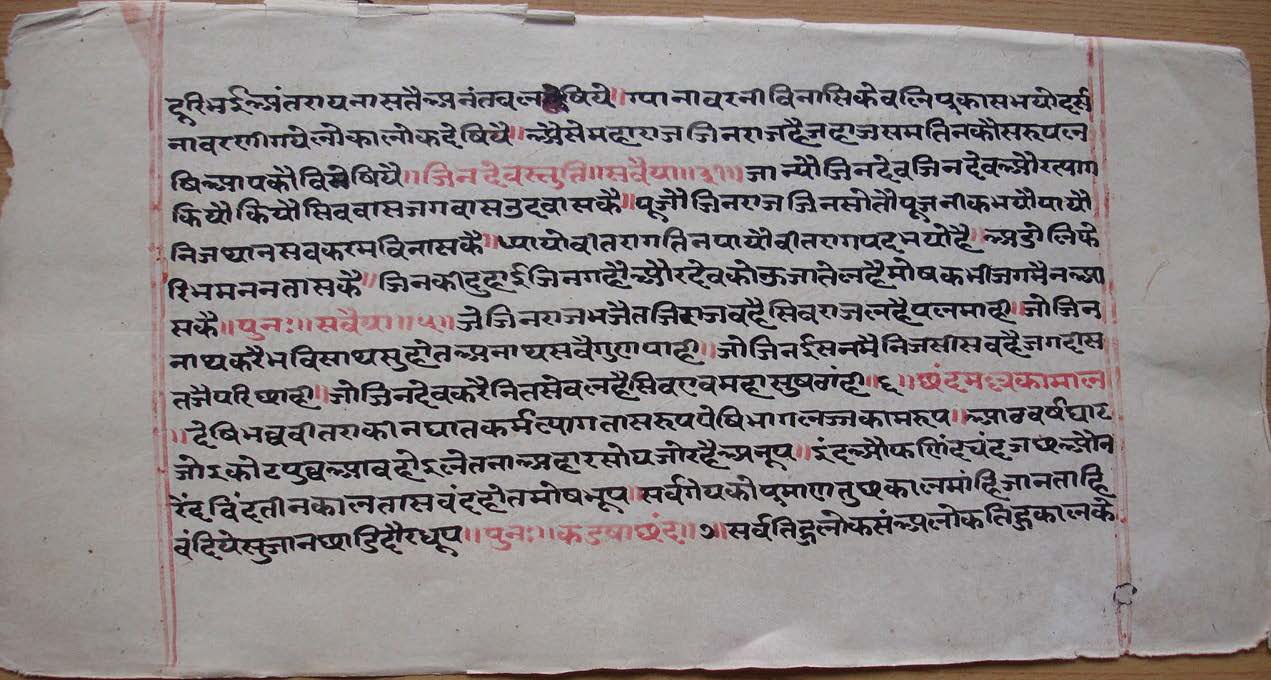 दूरिभईअंतरायनासतैअनंतवल षिये॥ग्यानावरनीविनासिकेवलिप्रकासभयोदर्स
नावरणीगयेलोकालोकदेषियै॥अैसेमहाराजजिनराजहैजहाजसमतिनकौसरूपल
षिआपकौविसेषियै॥जिनदेवस्तुति॥सवैया॥३१॥जान्यौजिनदेवजिनदेवऔरत्याग
कियौकियौसिववासजगवासउदवासकै॥पूजौजिनराजजिनसोतौपूजनीकभयौपायौ
निजथानसवकरमविनासकै॥ध्यायोवीतरागतिनपायौवीतरागपदभयोहै॥अडोलिफे
रिभमननतासकै॥जिनकीदुहाईजिनगहौऔरदेवकोऊजातेलहैमोषकभीजगमैनआ
सकै॥पुनः॥सवैया॥५॥जेजिनराजभजैतजिराजवहैसिवराजलहैपलमाही॥जोजिन
नाथकरैभविसाथसुहोतअनाथसवैगुणपाही॥जोजिनईसनमैनिजसीसवहैजगदीस
तजैपरिछाही॥जोजिनदेवकरैनितसेवलहैसिवएवमहासुष ॥६॥छंद
॥देषिभव्यवीतरागकीनघातकर्मत्यागतासरूपपेषिभागलज्जकामरूप॥आठवर्षघाट
जोइकोटपुव्वआवहोइलेतनाअहारसोयजोरहैअनूप॥इंदऔफणिंदचंदजछऔन
रेंदविंदतीनकालतासवंदहोतमोषभूप॥सर्वगेयकोप्रमाणतुछकालमांहिजानताहि
वंदियेसुजानछाडिदौरधूप॥पुनः॥कडषाछंद॥७॥सर्वतिहुलोकसंअलोकतिहुकालके